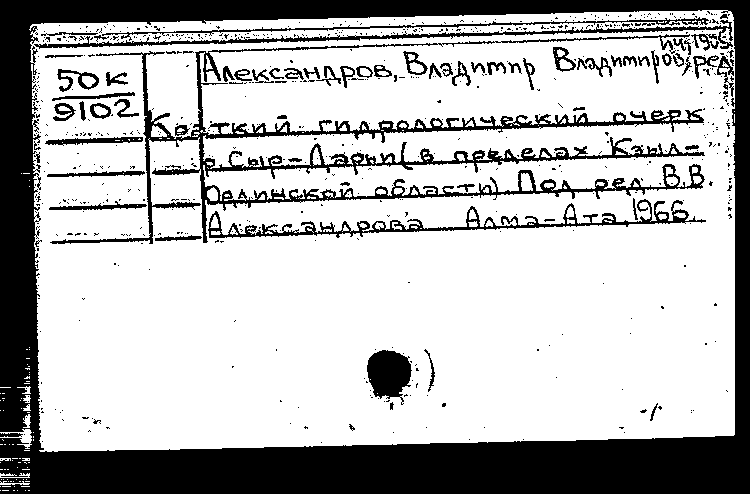 50к
9102
Александров, Владимир Владимиров, ред
Краткий гидрологический очерк
р. Сыр-Дарьи (в пределах Кзыл-
Ординской области) Под ред В.В.
Александрова Алма-Ата, 1966.